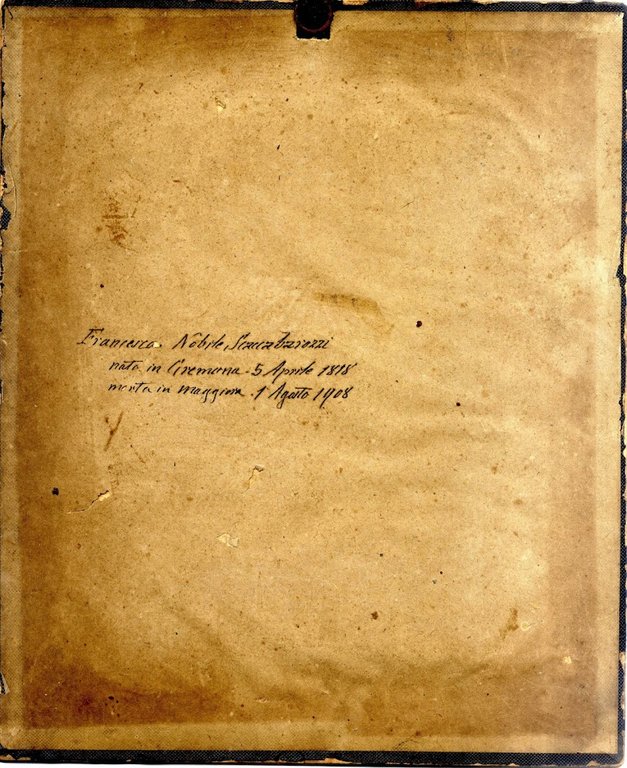 Francesca Nobile,
nata in Cremona. 5 Aprile 1818
morta in Maggiora. 1 Agosto 1908